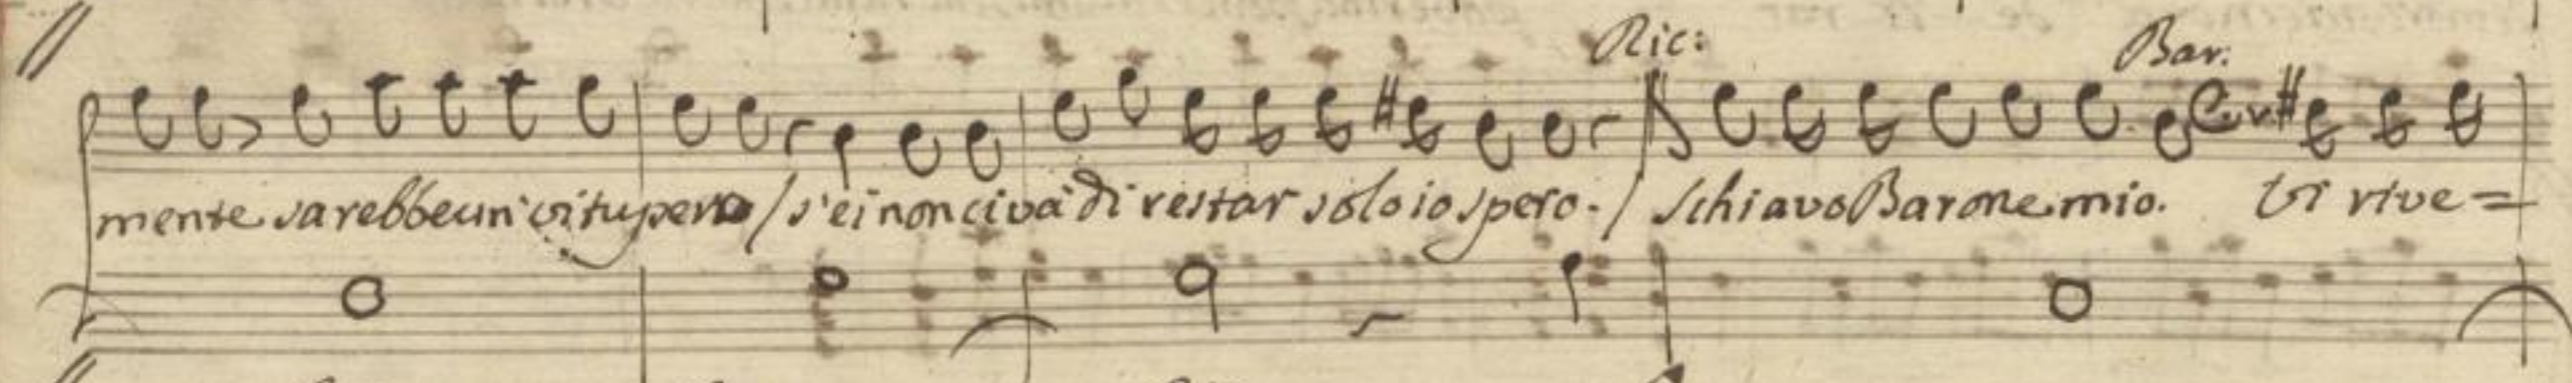 Ric: Bar.
mente sarebbe un' vitupero / s'ei non ci và di restar solo io spero. / Schiavo Barone mio. Vi rive=